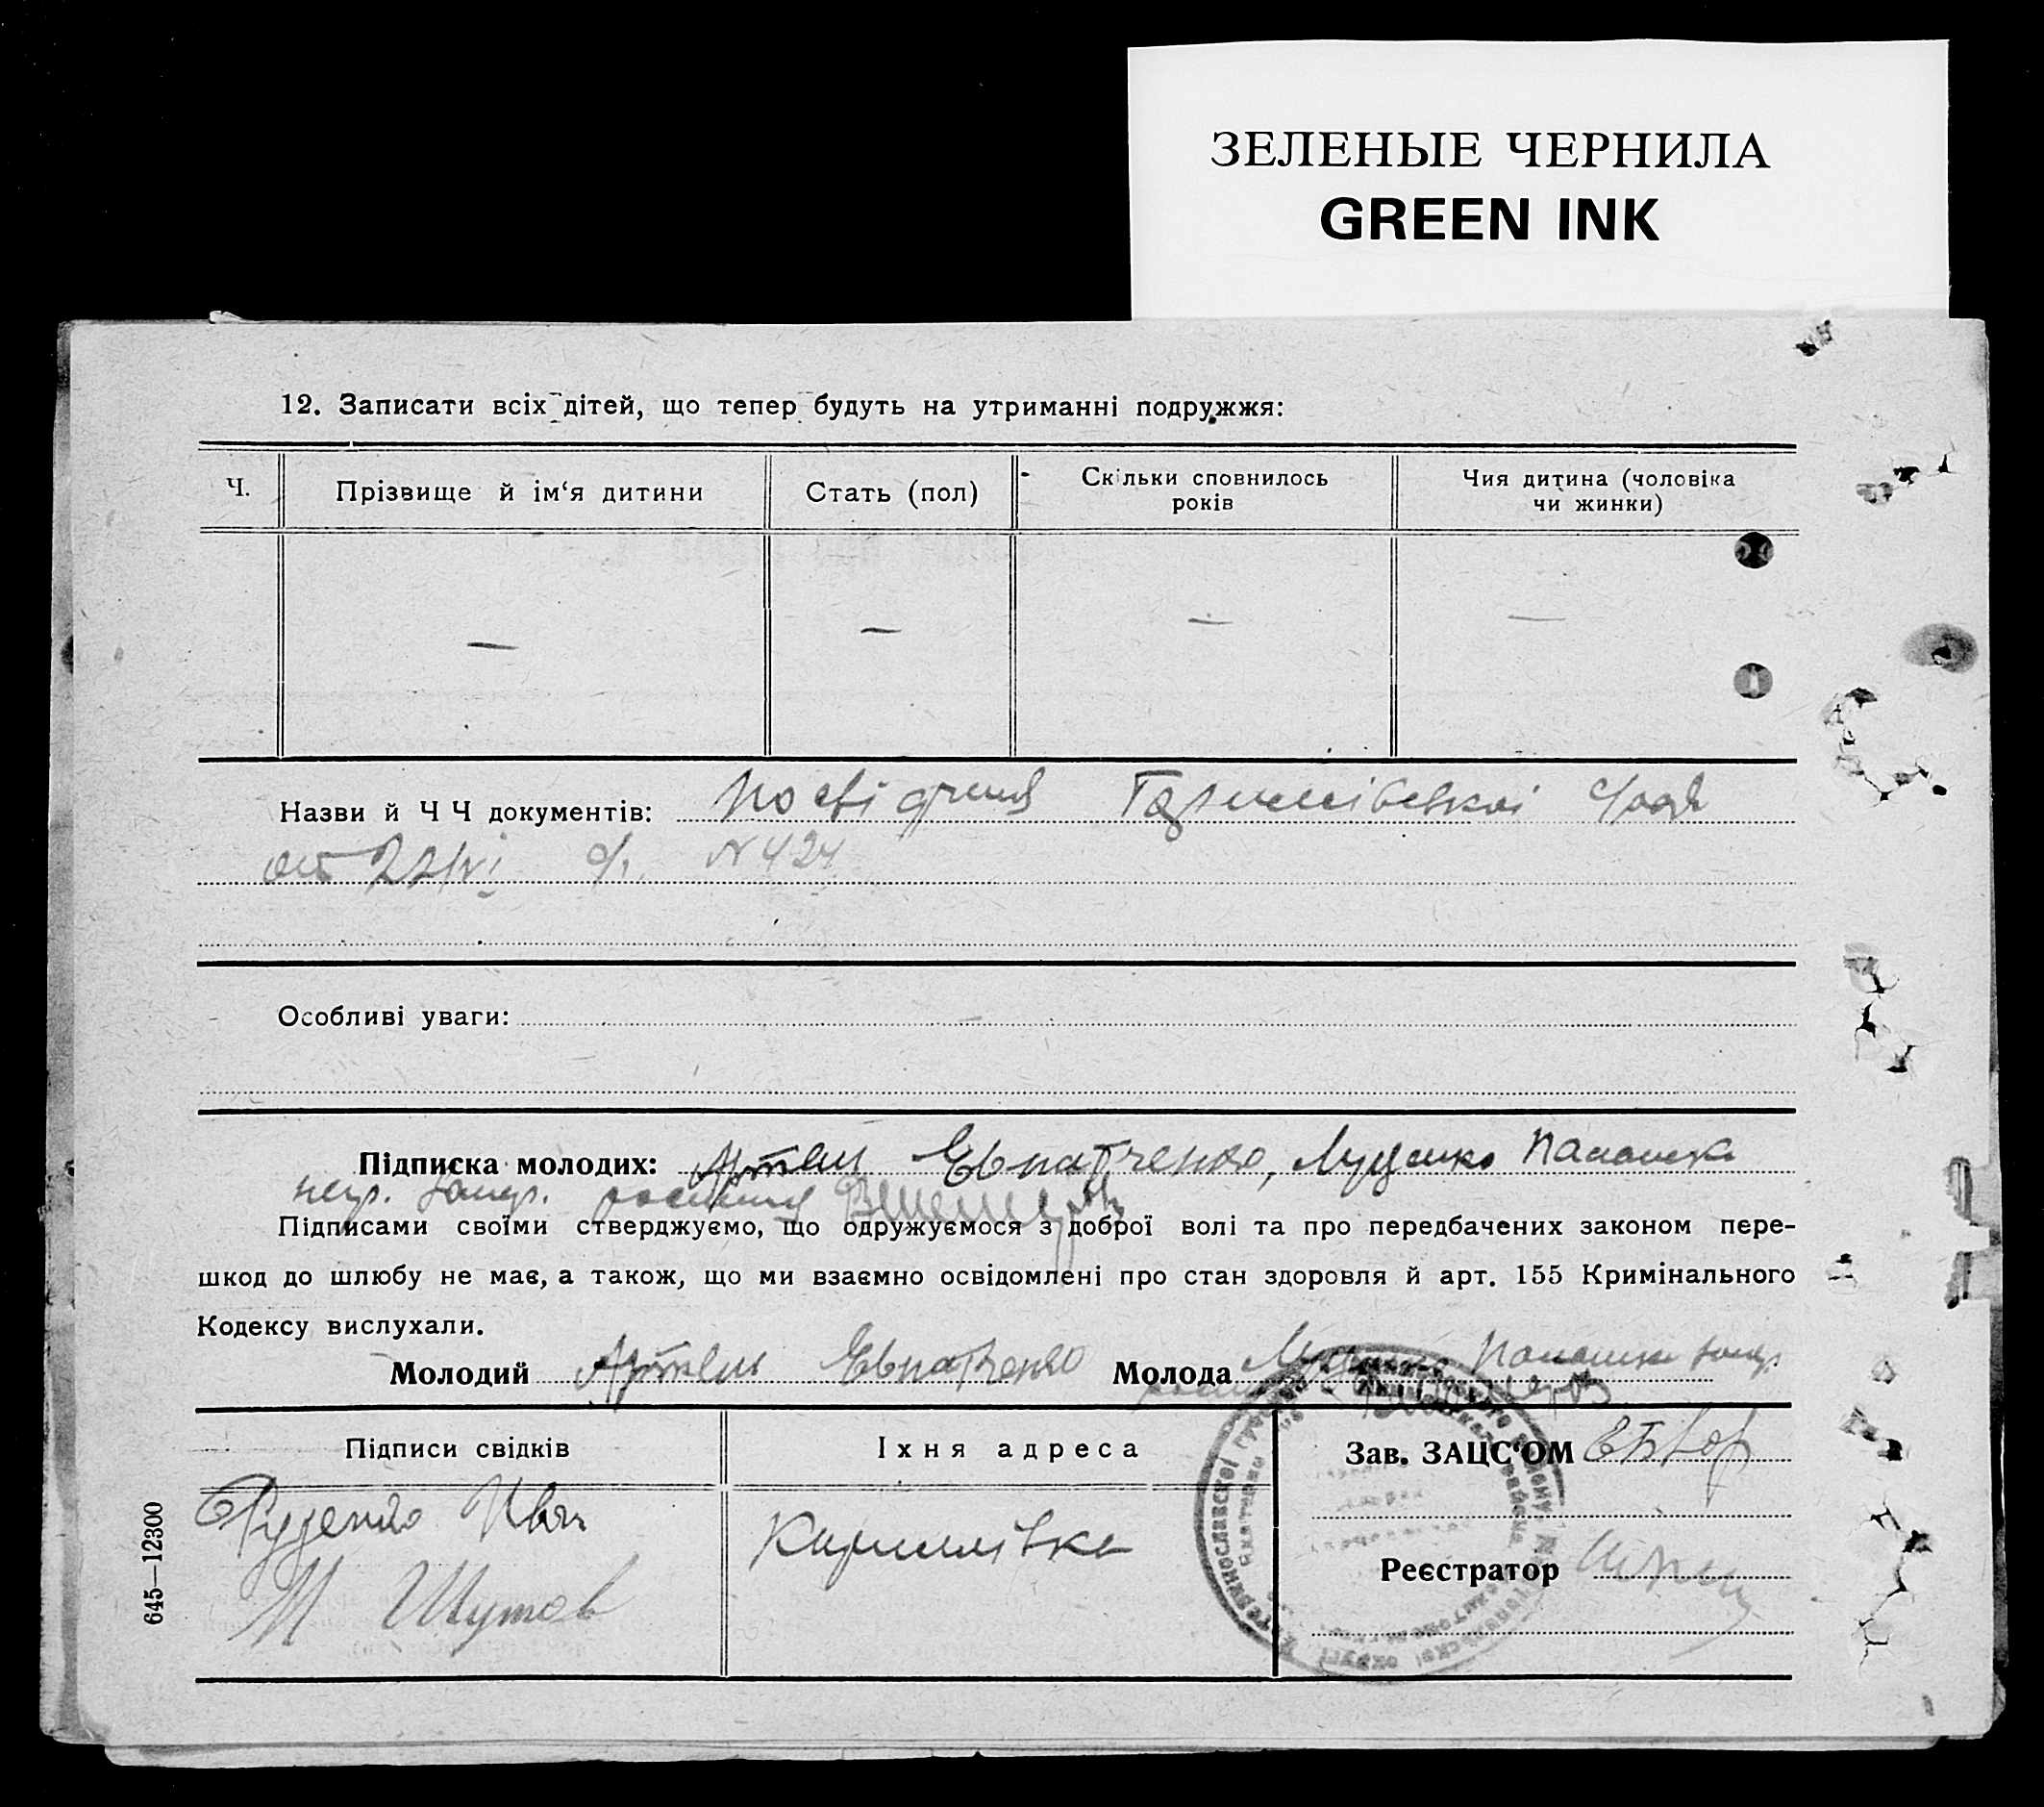 ЗЕЛЕНЫЕ ЧЕРНИЛА
GREEN INK
12. Записати всіх дітей, що тепер будуть на утриманні подружжя:
Ч.
Прізвище й ім‘я дитини
Стать (пол)
Скільки сповнилось
років
Чия дитина (чоловіка
чи жинки)
— — — —
Назви й Ч Ч документів: Посвідчення
от 22/VI с/г. N 424
Особливі уваги:
Підписка молодих: Артем Евпатченко, Луценко Палашка
негр.
Підписами своїми стверджуємо, що одружуємося з доброї волі та про передбачених законом пере-
шкод до шлюбу не має, а також, що ми взаємно освідомлені про стан здоровля й арт. 155 Кримінального
Кодексу вислухали.
Молодий Артем Евпатченко Молода Луценко Палашка
Підписи свідків
Їхня адреса
Зав. ЗАЦС‘ОМ
Руденко Иван
Кирилівка
М Шутов
Реєстратор
645—12300